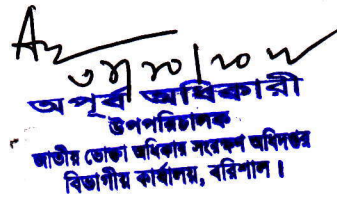 অপূর্ব অধিকারী
উপপরিচালক
জাতীয় ভোক্তা অধিকার সংরক্ষণ অধিদপ্তর
বিভাগীয় কার্যালয়, বরিশাল।